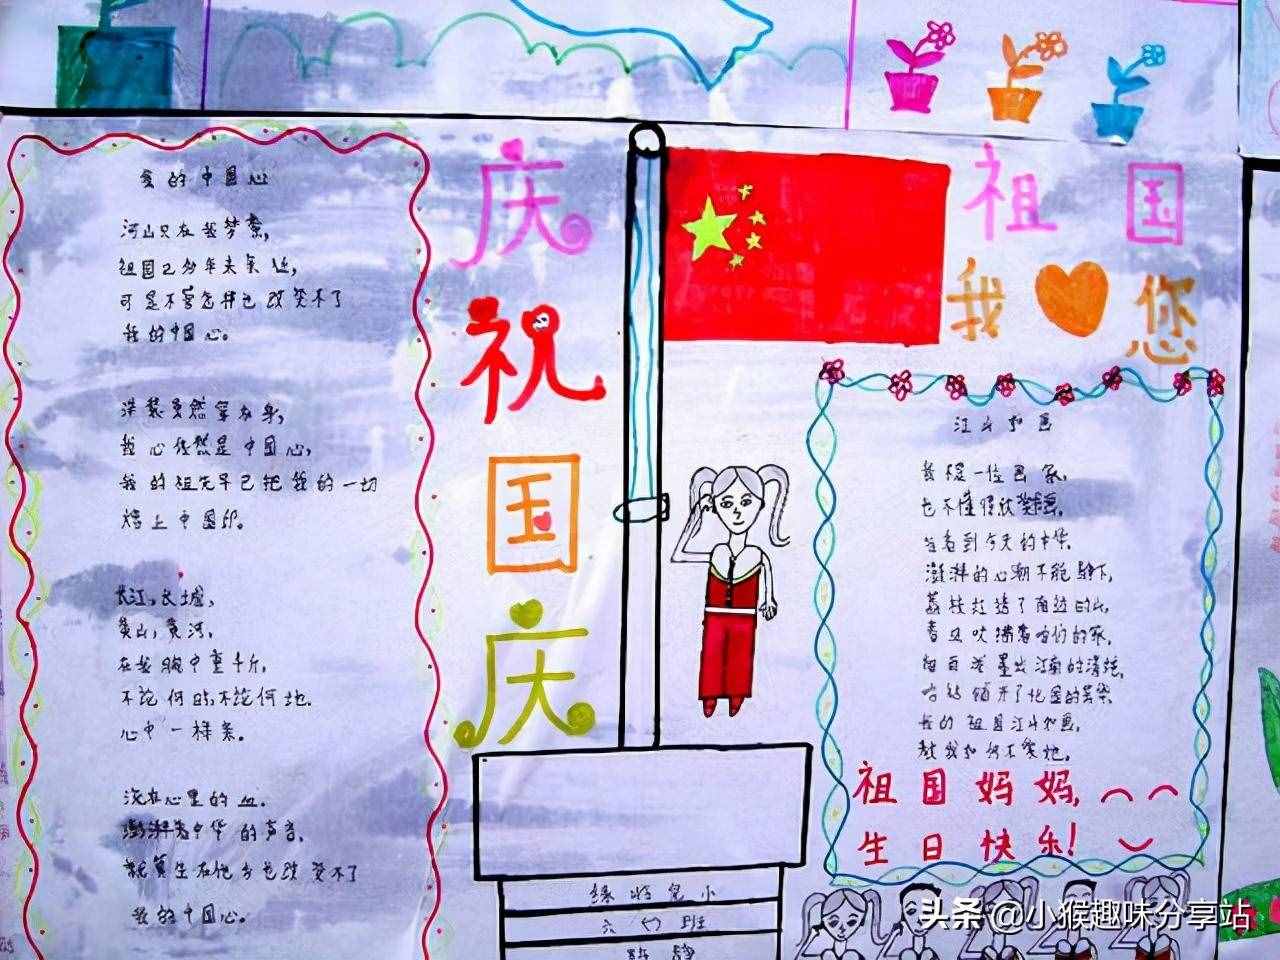 庆
祝
国
庆
祖国
我您
我的中国心
河山只在我梦萦,
祖国已多年未亲近,
可是不管怎样也改变不了
我的中国心。
洋装虽然穿在身,
我心依然是中国心,
我的祖先早已把我的一切
烙上中国印。
长江,长城,
黄山,黄河,
在我胸中重千斤,
不论何时,不论何地.
心中一样亲。
流在心里的血.
澎湃着中华的声音,
就算生在他乡也改变不了
我的中国心。
江山如画
我不是一位画家,
也不懂得欣赏画,
当看到今天的中华,
澎湃的心潮不能静下,
荔枝红透了南边的山,
春风吹拂着咱们的家,
我的祖国江山如画,
教我如何不爱她。
祖国妈妈,
生日快乐!
小
六班
头条 @小猴趣味分享站